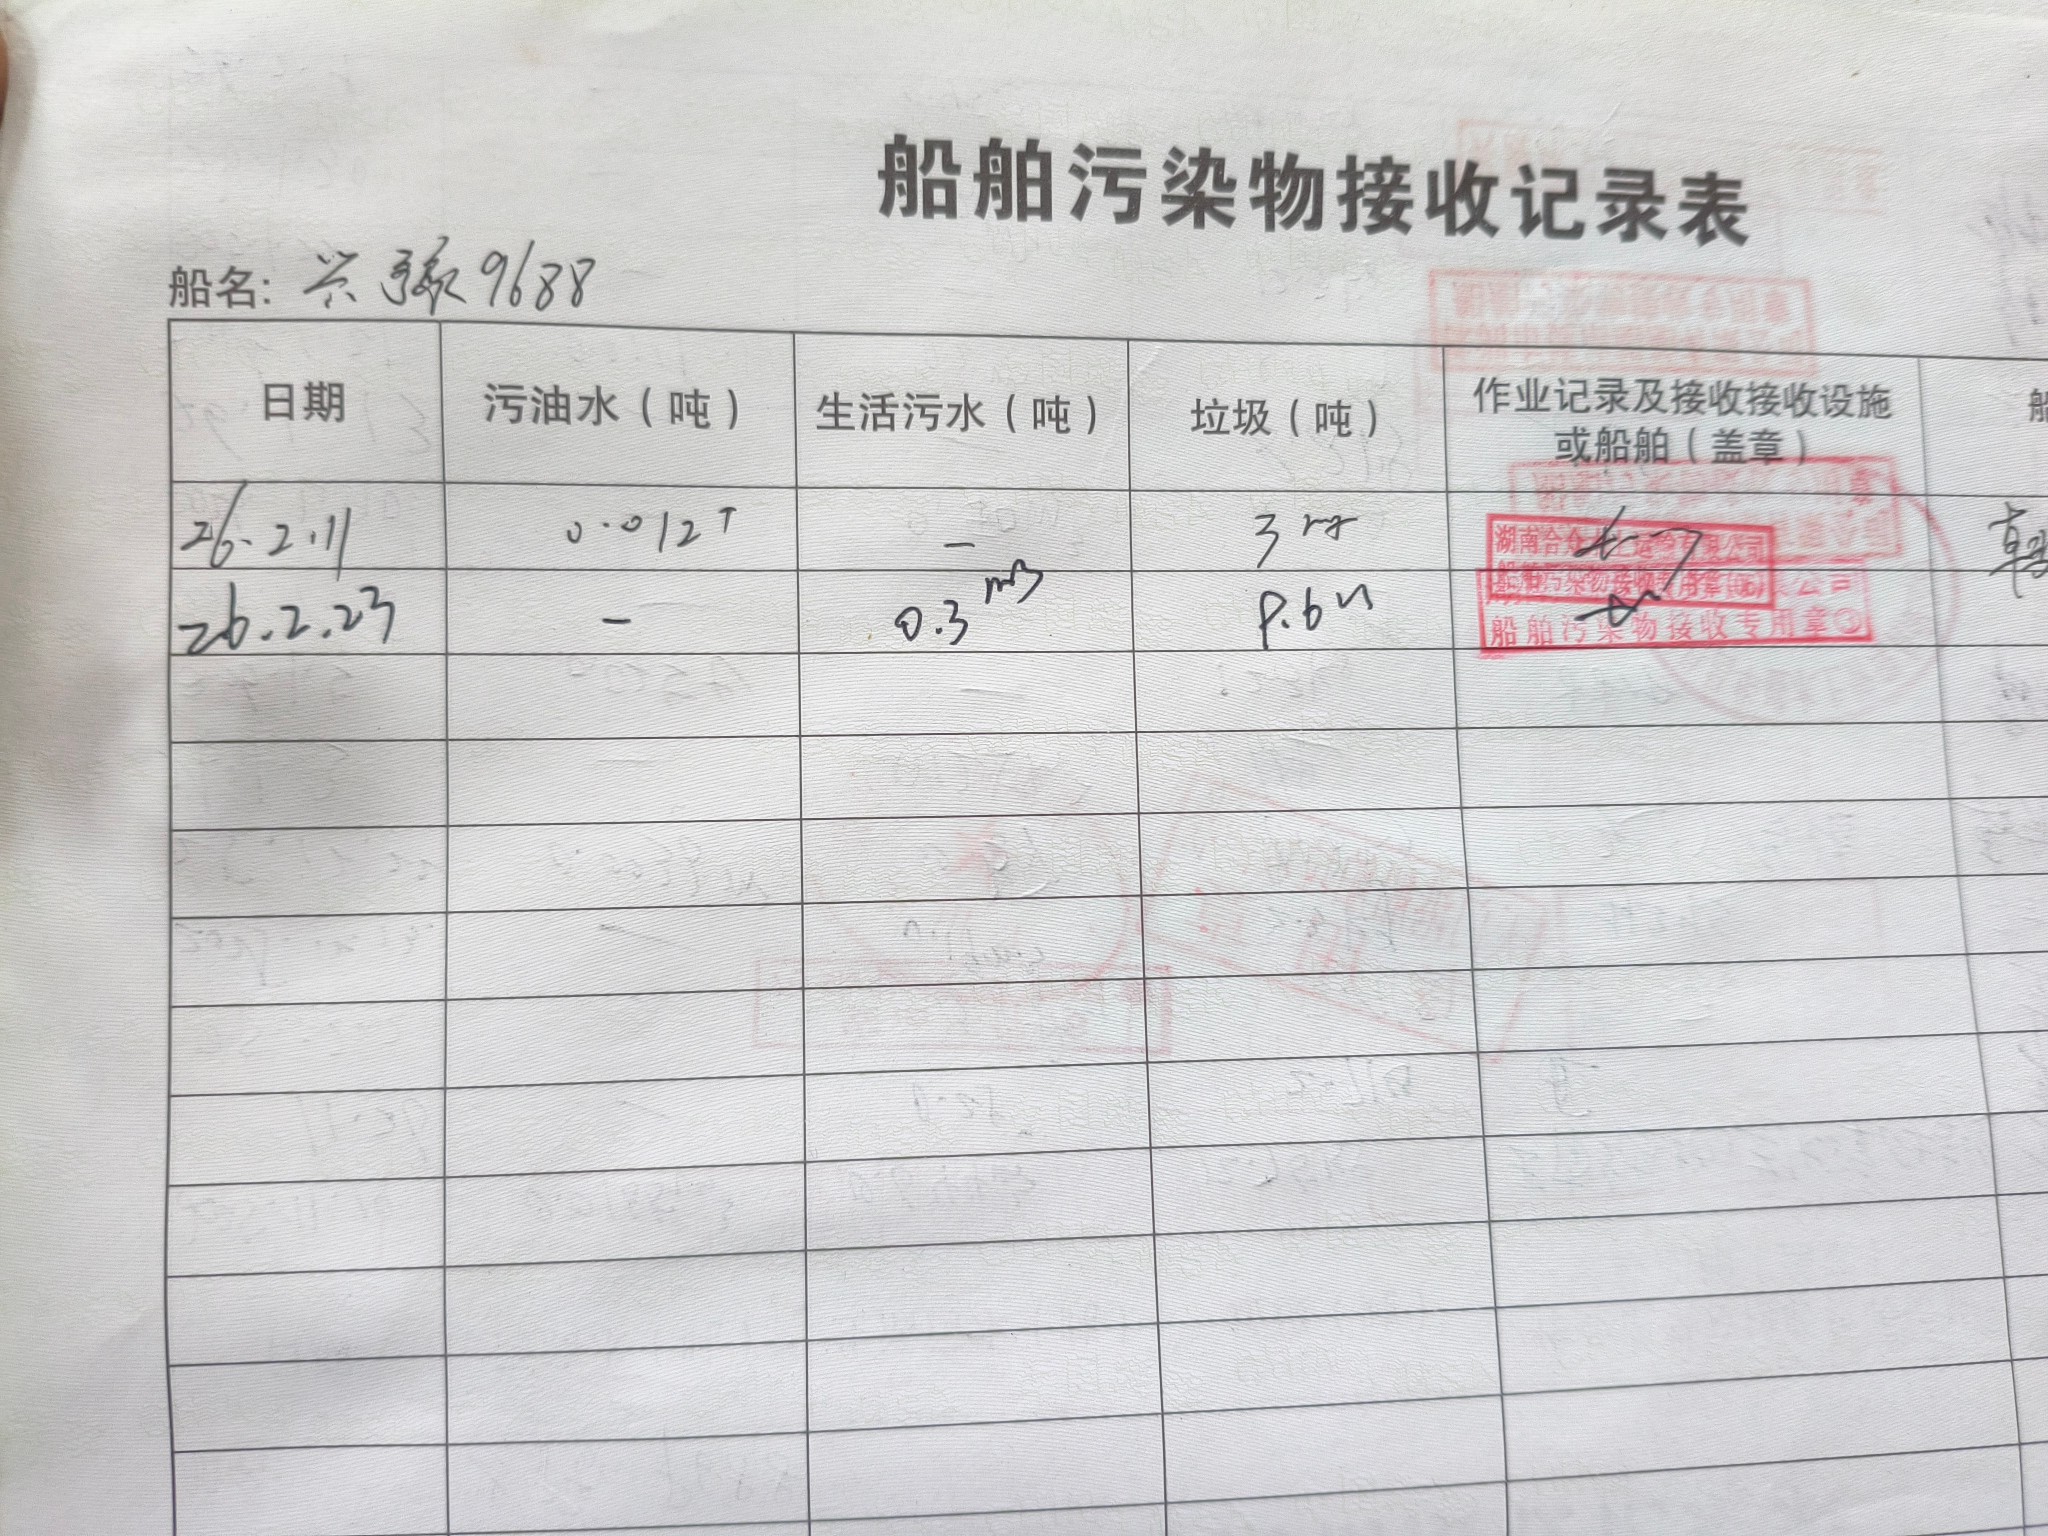 船舶污染物接收记录表
船名: 兴豫9688
日期 污油水（吨） 生活污水（吨） 垃圾（吨） 作业记录及接收接收设施或船舶（盖章） 船
26.2.11 0.012T — 3
26.2.23 — 0.3 m3
湖南合众水上运输有限公司
船舶污染物接收专用章
公司
船舶污染物接收专用章